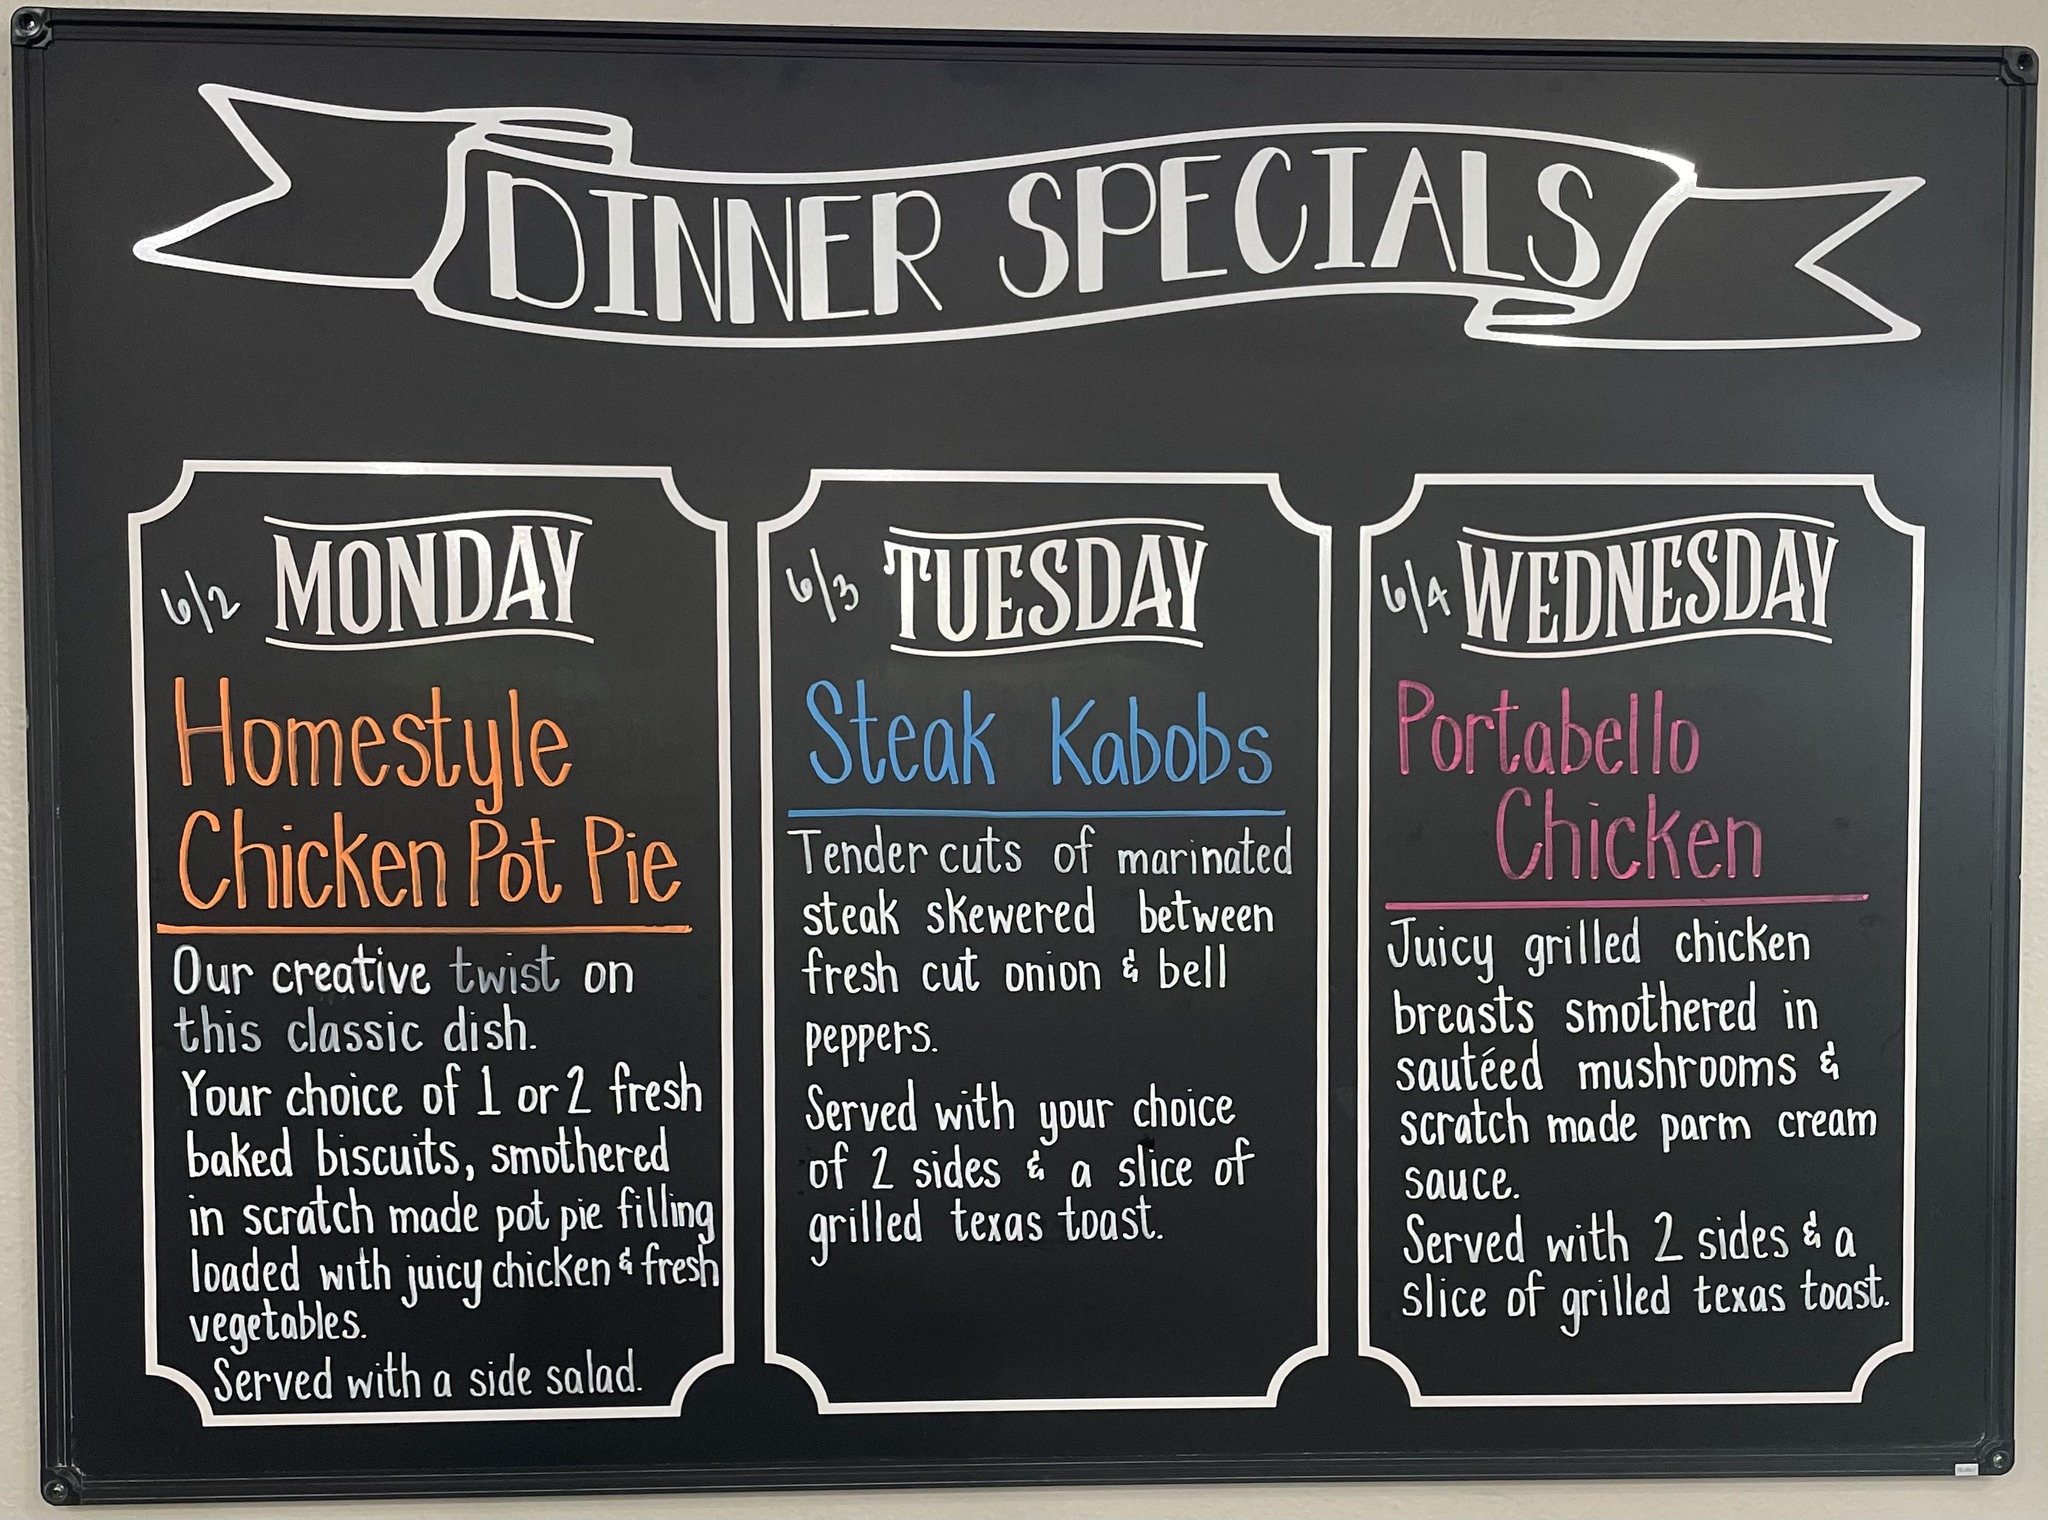 DINNER SPECIALS
6/2 MONDAY
Homestyle
Chicken Pot Pie
Our creative twist on
this classic dish.
Your choice of 1 or 2 fresh
baked biscuits, smothered
in scratch made pot pie filling
loaded with juicy chicken & fresh
vegetables.
Served with a side salad.
6/3 TUESDAY
Steak Kabobs
Tender cuts of marinated
steak skewered between
fresh cut onion & bell
peppers.
Served with your choice
of 2 sides & a slice of
grilled texas toast.
6/4 WEDNESDAY
Portabello
Chicken
Juicy grilled chicken
breasts smothered in
sautéed mushrooms &
scratch made parm cream
sauce.
Served with 2 sides & a
slice of grilled texas toast.